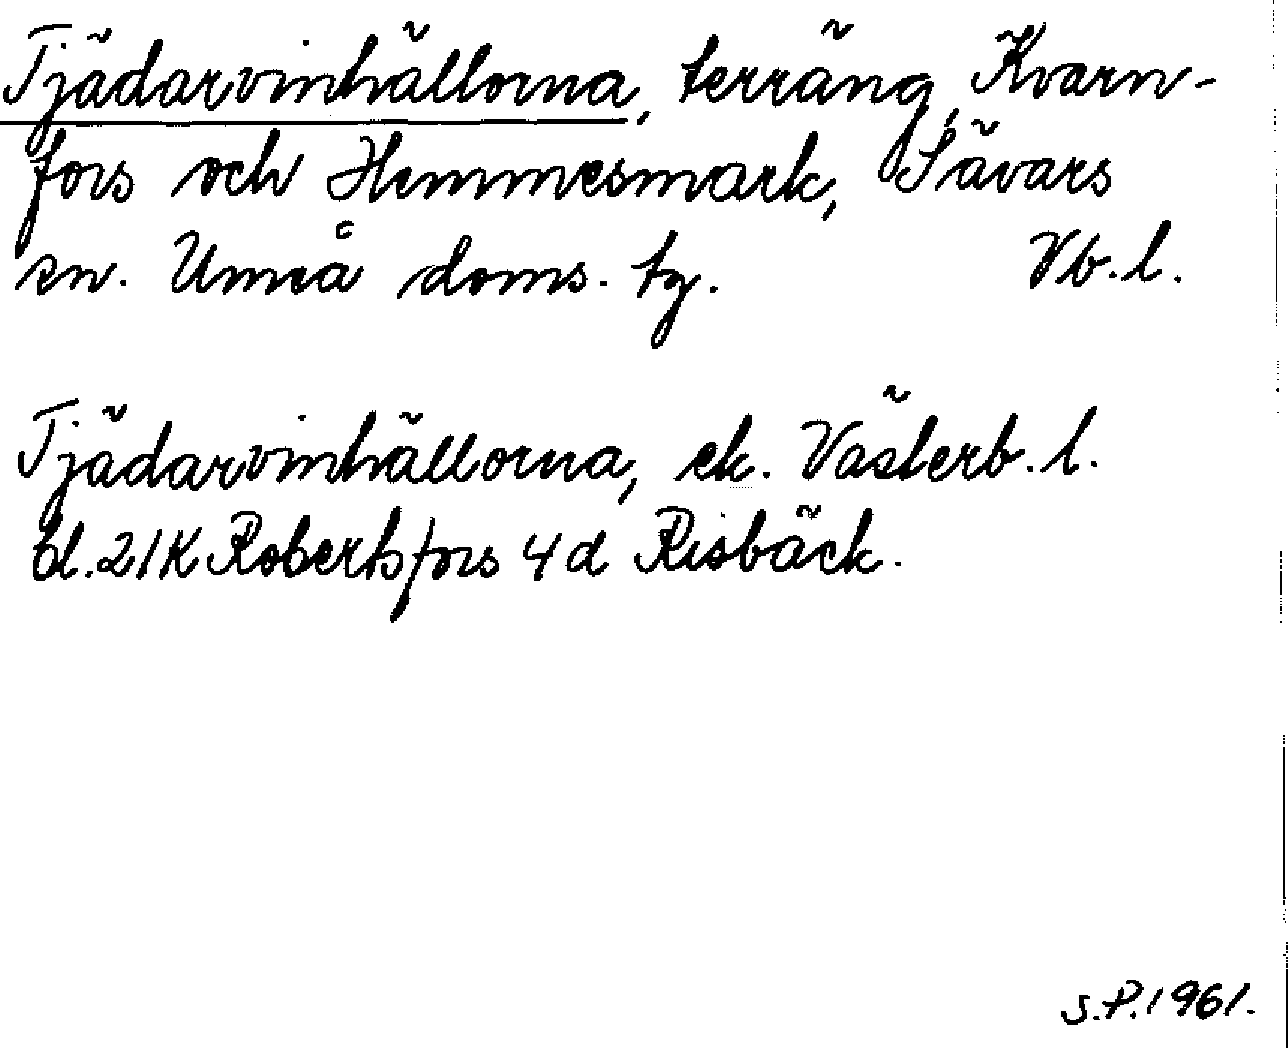 Tjädarvinhällorna, terräng, Kvarn-
fors och Hemmesmark, Sävars
sn. Umeå doms. tg. Vb. l.
Tjädarvinhällorna, ek. Västerb. l.
bl. 21K Robertsfors 4d Risbäck.
S.P. 1961.